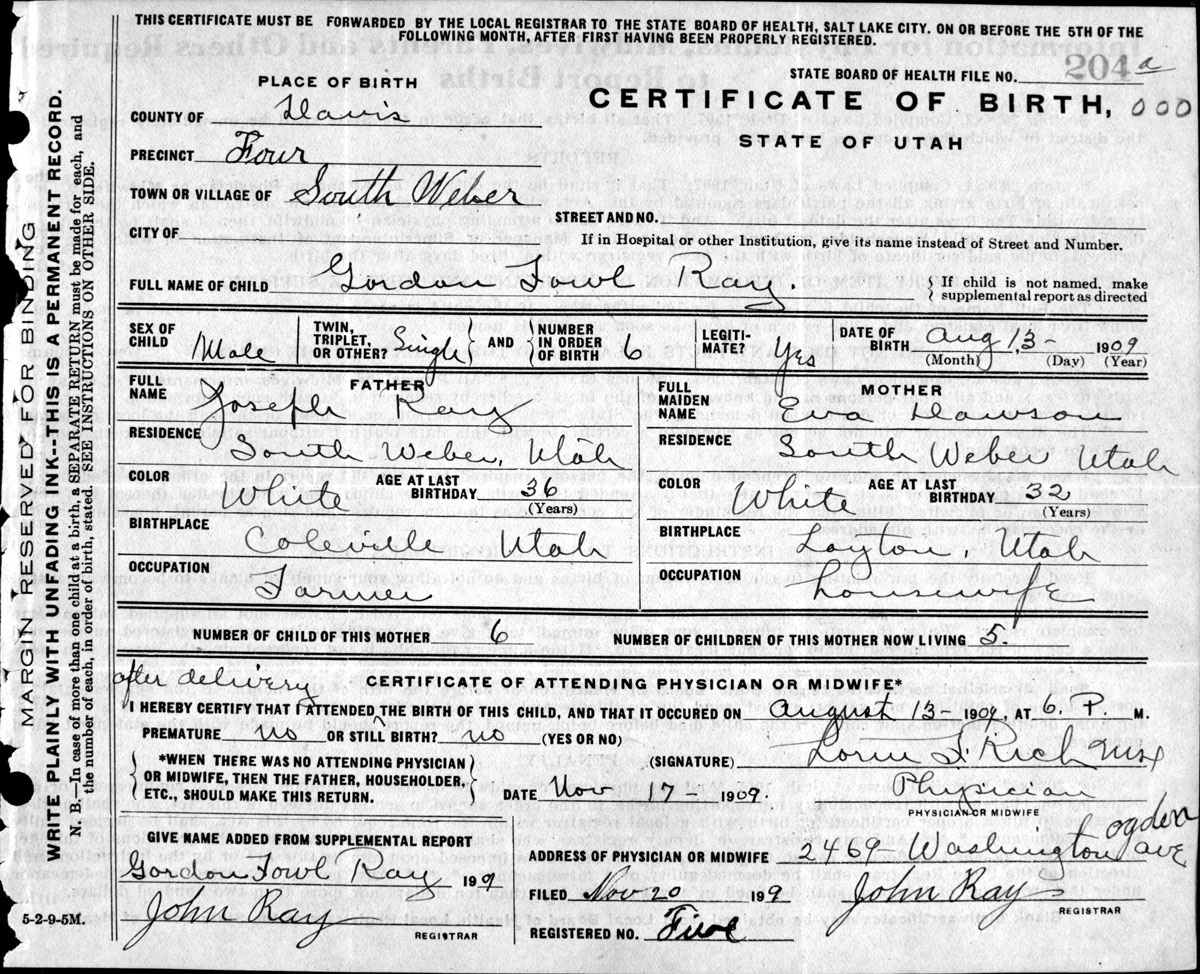 THIS CERTIFICATE MUST BE FORWARDED BY THE LOCAL REGISTRAR TO THE STATE BOARD OF HEALTH, SALT LAKE CITY. ON OR BEFORE THE 5TH OF THE
FOLLOWING MONTH, AFTER FIRST HAVING BEEN PROPERLY REGISTERED.
STATE BOARD OF HEALTH FILE NO. 204 a
PLACE OF BIRTH
CERTIFICATE OF BIRTH, 000
STATE OF UTAH
COUNTY OF Davis
PRECINCT Four
TOWN OR VILLAGE OF South Weber
STREET AND NO.
CITY OF
If in Hospital or other Institution, give its name instead of Street and Number.
FULL NAME OF CHILD Gordon Fowl Ray.
If child is not named, make
supplemental report as directed
SEX OF CHILD Male
TWIN, TRIPLET, OR OTHER? Single
AND NUMBER IN ORDER OF BIRTH 6
LEGITI- MATE? Yes
DATE OF BIRTH Aug 13 - 1909
(Month) (Day) (Year)
FATHER
FULL NAME Joseph Ray
RESIDENCE South Weber, Utah
COLOR White AGE AT LAST BIRTHDAY 36
(Years)
BIRTHPLACE Coleville Utah
OCCUPATION Farmer
MOTHER
FULL MAIDEN NAME Eva Dawson
RESIDENCE South Weber Utah
COLOR White AGE AT LAST BIRTHDAY 32
(Years)
BIRTHPLACE Layton Utah
OCCUPATION Housewife
NUMBER OF CHILD OF THIS MOTHER 6 NUMBER OF CHILDREN OF THIS MOTHER NOW LIVING 5.
after delivery
CERTIFICATE OF ATTENDING PHYSICIAN OR MIDWIFE*
I HEREBY CERTIFY THAT I ATTENDED THE BIRTH OF THIS CHILD, AND THAT IT OCCURED ON August 13 1909, AT 6. P. M.
PREMATURE no OR STILL BIRTH? no (YES OR NO)
*WHEN THERE WAS NO ATTENDING PHYSICIAN
OR MIDWIFE, THEN THE FATHER, HOUSEHOLDER,
ETC., SHOULD MAKE THIS RETURN.
(SIGNATURE) Rich
DATE Nov 17 1909.
Physician
PHYSICIAN OR MIDWIFE
GIVE NAME ADDED FROM SUPPLEMENTAL REPORT
Gordon Fowl Ray 1909
John Ray
REGISTRAR
ADDRESS OF PHYSICIAN OR MIDWIFE 2469 Washington ave ogden
FILED Nov 20 1909 John Ray
REGISTRAR
REGISTERED NO. Five
5-2-9-5M.
MARGIN RESERVED FOR BINDING
WRITE PLAINLY WITH UNFADING INK--THIS IS A PERMANENT RECORD.
N. B.—In case of more than one child at a birth, a SEPARATE RETURN must be made for each, and
the number of each, in order of birth, stated. SEE INSTRUCTIONS ON OTHER SIDE.